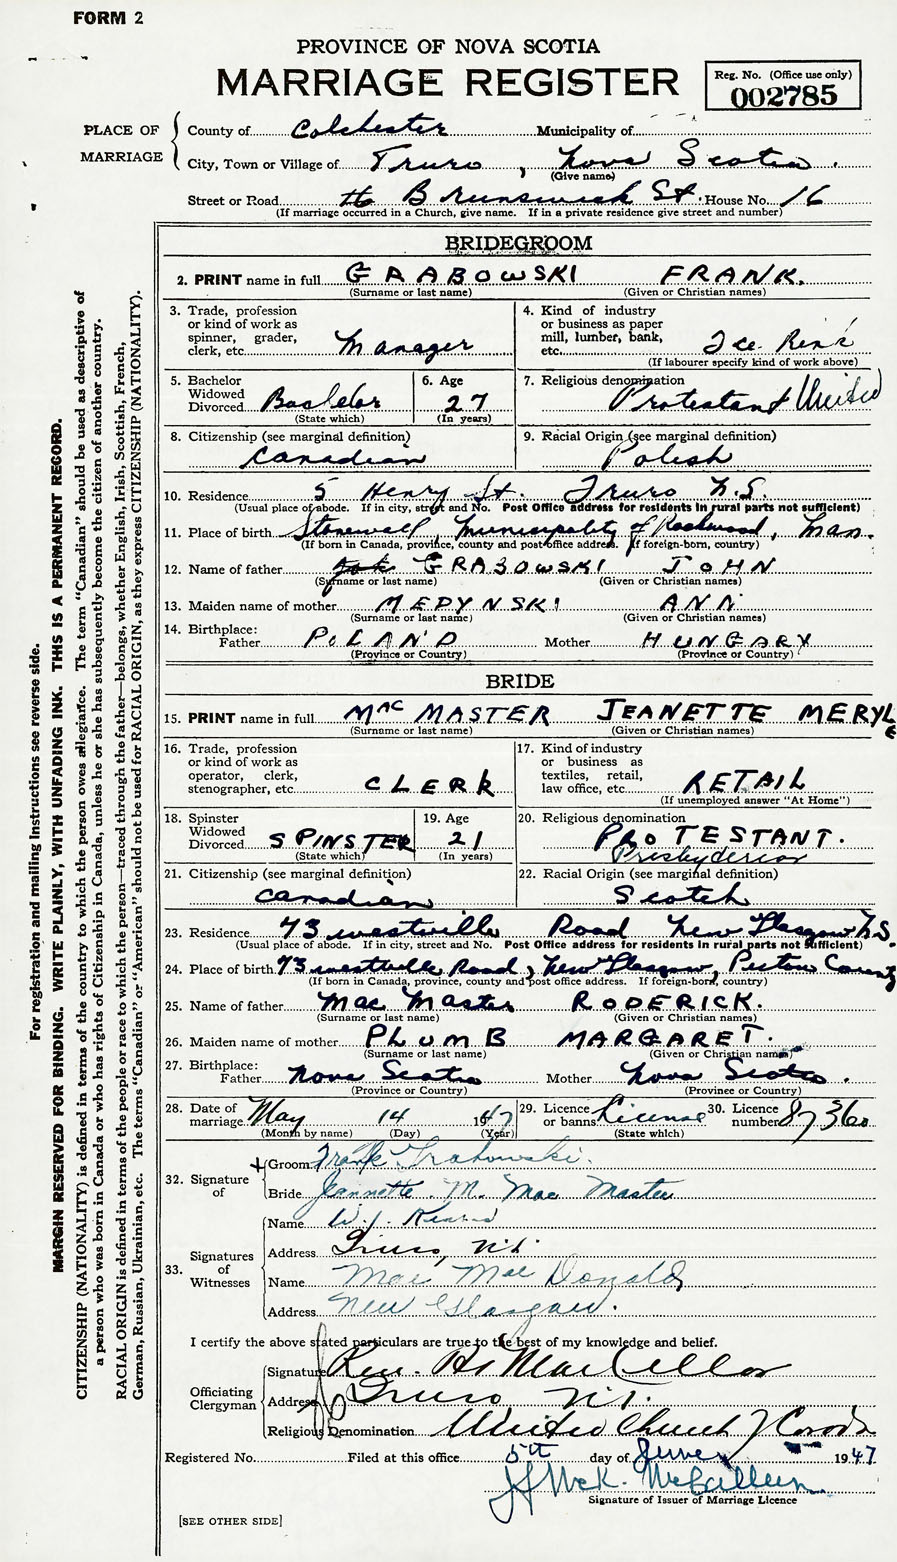 FORM 2
PROVINCE OF NOVA SCOTIA
MARRIAGE REGISTER
Reg. No. (Office use only)
002785
PLACE OF MARRIAGE
County of Colchester Municipality of
City, Town or Village of Truro, Nova Scotia.
(Give name)
Street or Road Brunswick St. House No. 16
(If marriage occurred in a Church, give name. If in a private residence give street and number)
BRIDEGROOM
2. PRINT name in full GRABOWSKI FRANK.
(Surname or last name) (Given or Christian names)
3. Trade, profession or kind of work as spinner, grader, clerk, etc. Manager
4. Kind of industry or business as paper mill, lumber, bank, etc. Ice Rink
(If labourer specify kind of work above)
5. Bachelor Widowed Divorced Bachelor
(State which)
6. Age 27
(In years)
7. Religious denomination Protestant United
8. Citizenship (see marginal definition) Canadian
9. Racial Origin (see marginal definition) Polish
10. Residence 5 Henry St. Truro N.S.
(Usual place of abode. If in city, street and No. Post Office address for residents in rural parts not sufficient)
11. Place of birth Stonewall, Municipality of Rockwood, Man.
(If born in Canada, province, county and post office address. If foreign-born, country)
12. Name of father GRABOWSKI JOHN
(Surname or last name) (Given or Christian names)
13. Maiden name of mother MEDYNSKI ANN
(Surname or last name) (Given or Christian names)
14. Birthplace: Father POLAND Mother HUNGARY
(Province or Country) (Province or Country)
BRIDE
15. PRINT name in full MacMASTER JEANETTE MERYLE
(Surname or last name) (Given or Christian names)
16. Trade, profession or kind of work as operator, clerk, stenographer, etc. CLERK
17. Kind of industry or business as textiles, retail, law office, etc. RETAIL
(If unemployed answer "At Home")
18. Spinster Widowed Divorced SPINSTER
(State which)
19. Age 21
(In years)
20. Religious denomination PROTESTANT.
Presbyterian
21. Citizenship (see marginal definition) Canadian
22. Racial Origin (see marginal definition) Scotch
23. Residence 73 Westville Road New Glasgow N.S.
(Usual place of abode. If in city, street and No. Post Office address for residents in rural parts not sufficient)
24. Place of birth 73 Westville Road, New Glasgow, Pictou County
(If born in Canada, province, county and post office address. If foreign-born, country)
25. Name of father Mac Master RODERICK.
(Surname or last name) (Given or Christian names)
26. Maiden name of mother PLUMB MARGARET.
(Surname or last name) (Given or Christian names)
27. Birthplace: Father Nova Scotia Mother Nova Scotia.
(Province or Country) (Province or Country)
28. Date of marriage May 14 1947
(Month by name) (Day) (Year)
29. Licence or banns License
(State which)
30. Licence number 87360
32. Signature of
Groom Frank Grabowski.
Bride Jeannette M. Mac Master
33. Signatures of Witnesses
Name W. J.
Address Truro, N.S.
Name Mac Donald
Address New Glasgow.
I certify the above stated particulars are true to the best of my knowledge and belief.
Officiating Clergyman
Signature Rev.
Address Truro N.S.
Religious Denomination United Church of Canada
Registered No. Filed at this office 5th day of June 1947
Signature of Issuer of Marriage Licence
[SEE OTHER SIDE]
For registration and mailing Instructions see reverse side.
MARGIN RESERVED FOR BINDING. WRITE PLAINLY, WITH UNFADING INK. THIS IS A PERMANENT RECORD.
CITIZENSHIP (NATIONALITY) is defined in terms of the country to which the person owes allegiance. The term "Canadian" should be used as descriptive of
a person who was born in Canada or who has rights of Citizenship in Canada, unless he or she has subsequently become the citizen of another country.
RACIAL ORIGIN is defined in terms of the people or race to which the person—traced through the father—belongs, whether English, Irish, Scottish, French,
German, Russian, Ukrainian, etc. The terms "Canadian" or "American" should not be used for RACIAL ORIGIN, as they express CITIZENSHIP (NATIONALITY).